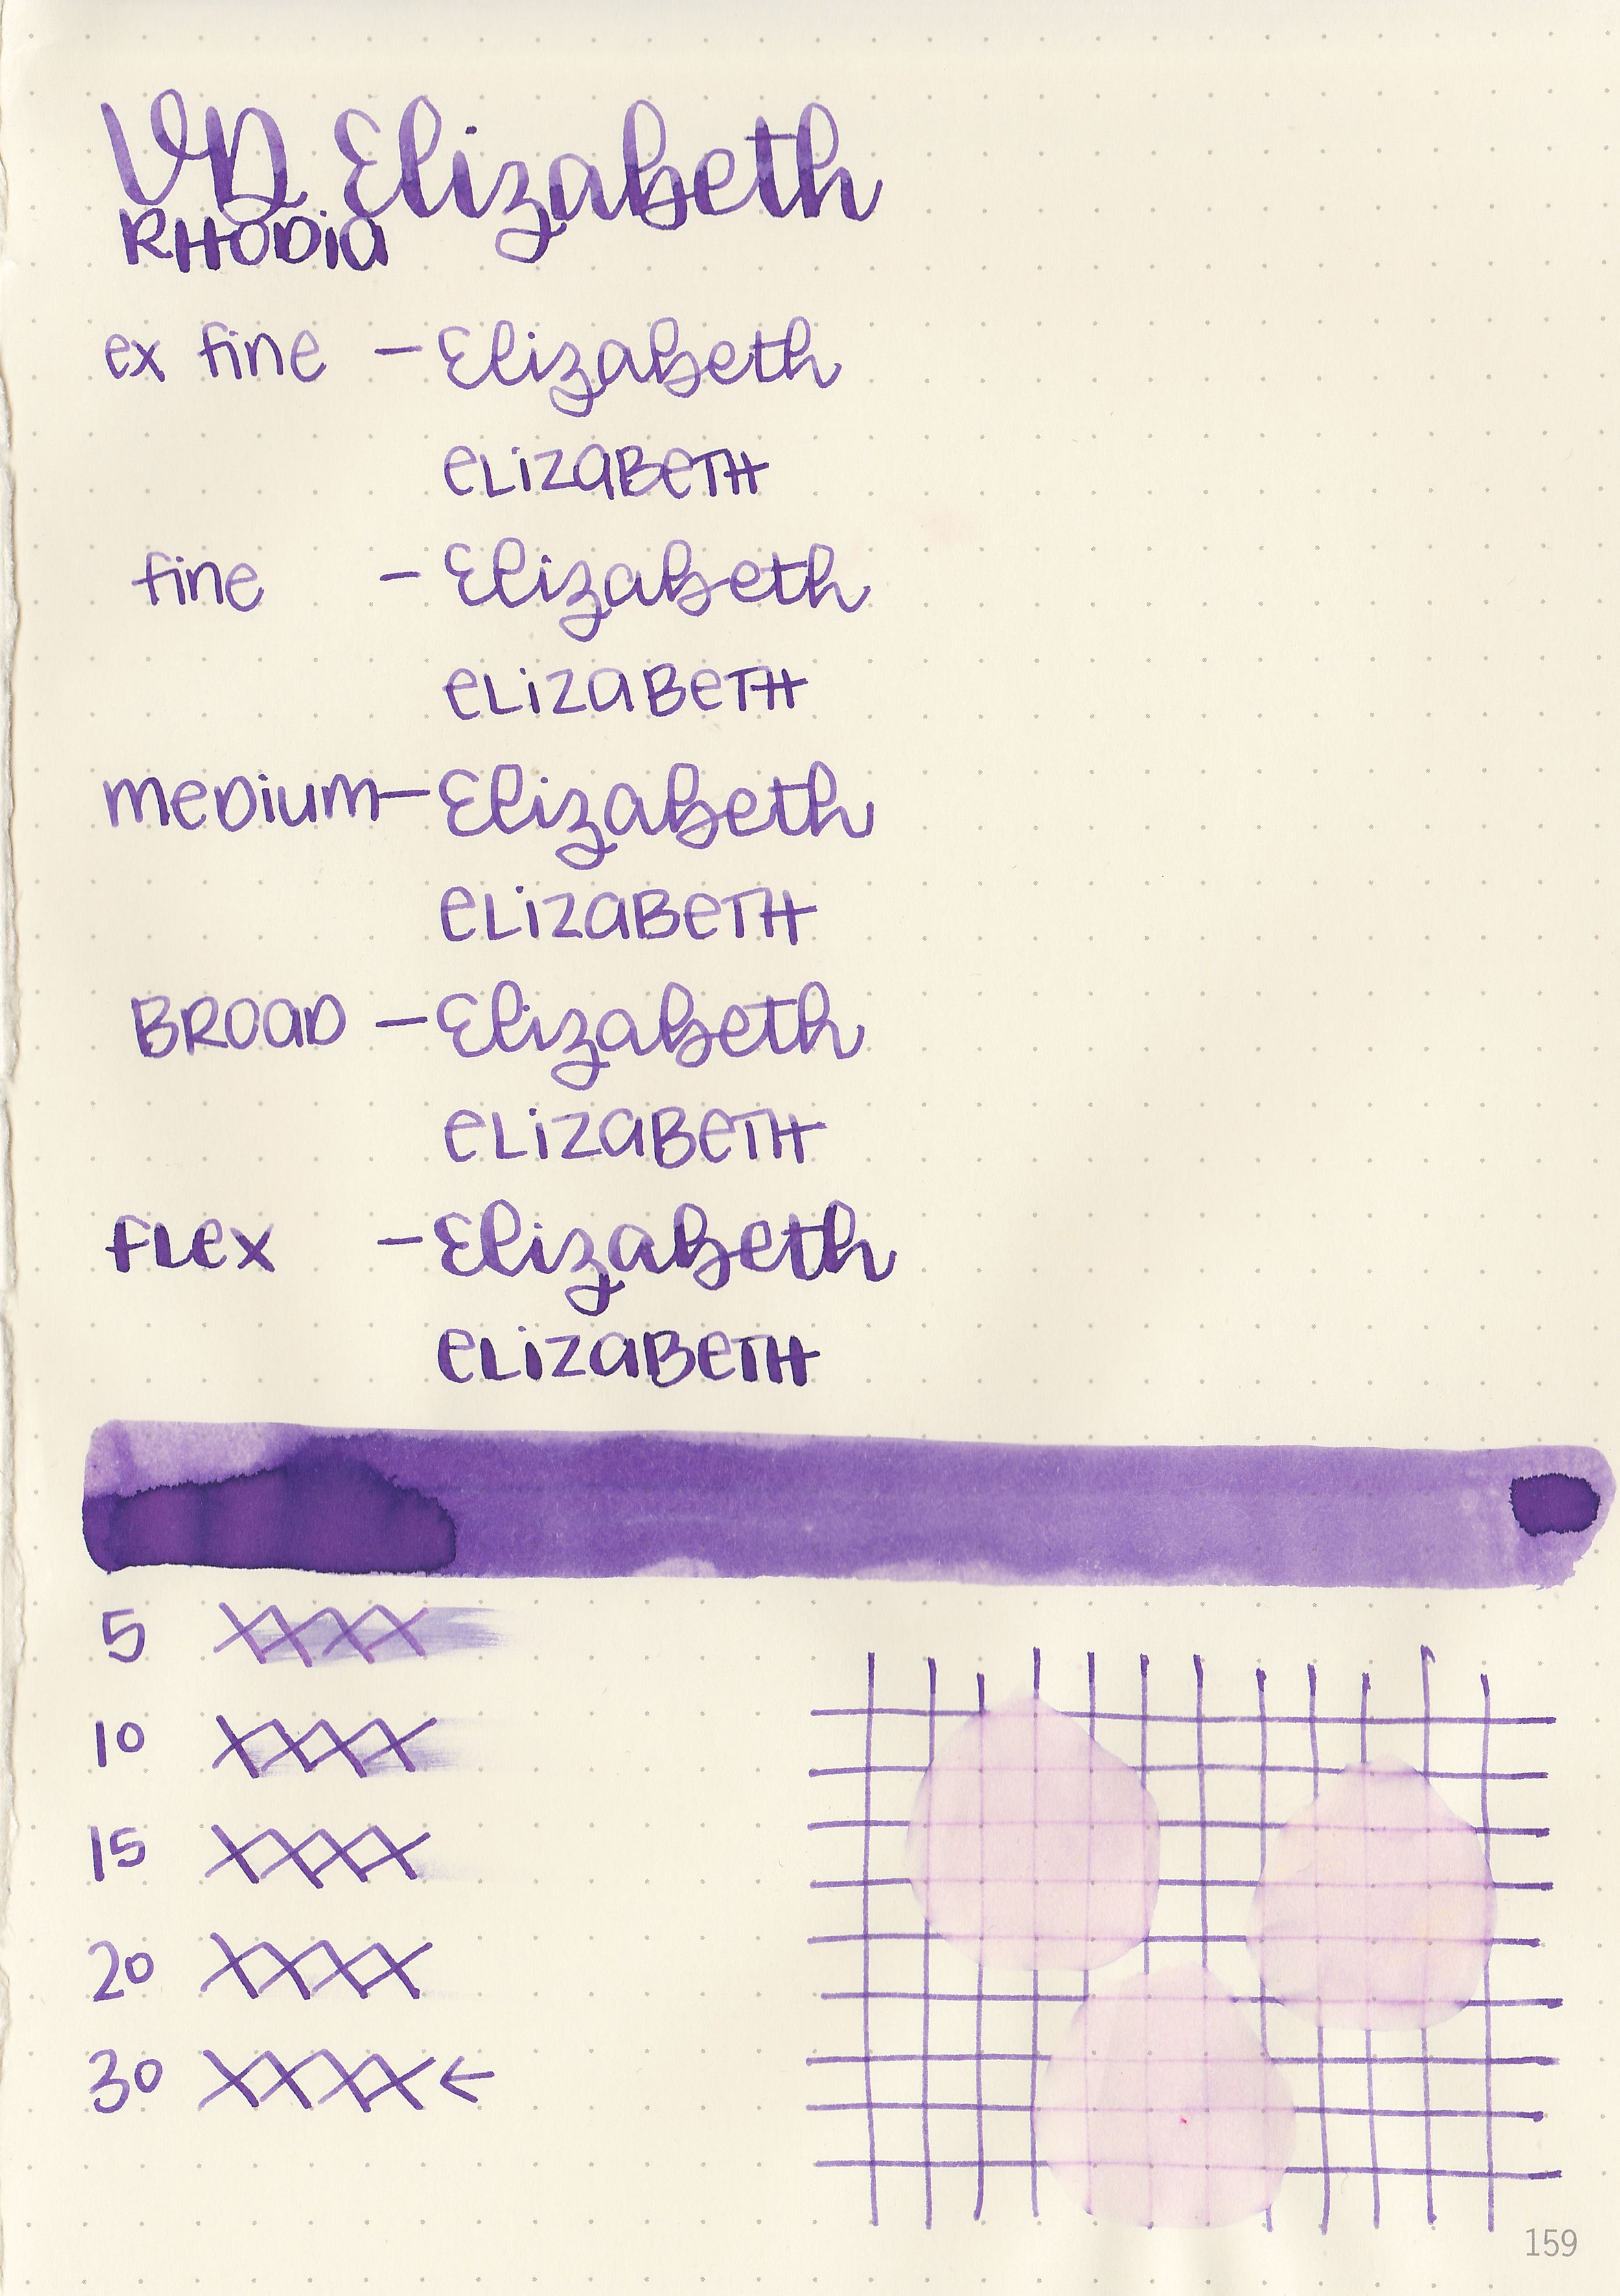 VD Elizabeth
RHODia
ex fine – Elizabeth
eLizaBeTH
fine – Elizabeth
eLizaBeTH
meDium – Elizabeth
eLizaBeTH
BROaD – Elizabeth
eLizaBeTH
fLex – Elizabeth
eLizaBeTH
5 XXXX
10 XXXX
15 XXXX
20 XXXX
30 XXXX ←
159